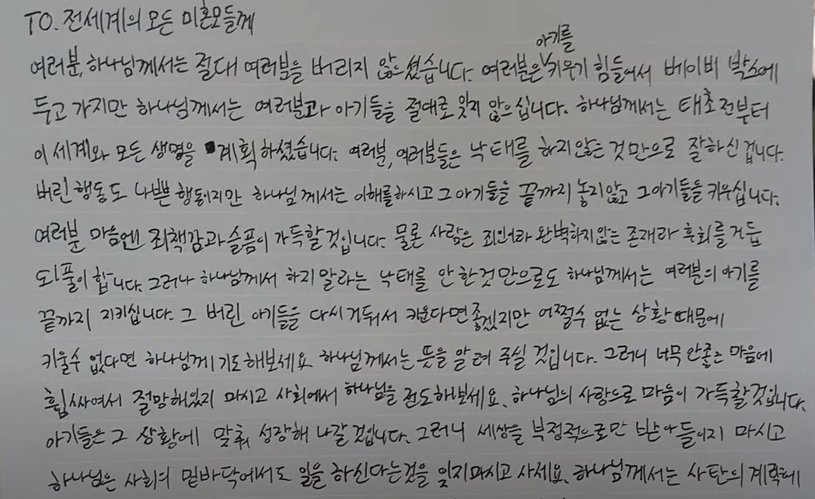 TO. 전세계의 모든 미혼모들께
여러분, 하나님께서는 절대 여러분을 버리지 않으셨습니다. 여러분은 아기를 키우기 힘들어서 베이비 박스에
두고 가지만 하나님께서는 여러분과 아기들을 절대로 잊지 않으십니다. 하나님께서는 태초전부터
이 세계와 모든 생명을 계획하셨습니다. 여러분, 여러분들은 낙태를 하지않는 것만으로 잘하신겁니다.
버린 행동도 나쁜 행동이지만 하나님께서는 이해를하시고 그 아기들을 끝까지 놓지않고 그아기들을 키우십니다.
여러분 마음엔 죄책감과 슬픔이 가득할것입니다. 물론 사람은 죄인이라 완벽하지않는 존재라 후회를 거듭
되풀이 합니다. 그러나 하나님께서 하지말라는 낙태를 안한것만으로도 하나님께서는 여러분의 아기를
끝까지 지키십니다. 그 버린 아기들을 다시 거둬서 키운다면좋겠지만 어쩔수 없는 상황때문에
키울수 없다면 하나님께 기도해보세요. 하나님께서는 뜻을 알려 주실 것입니다. 그러니 너무 안좋은 마음에
휩싸여서 절망해있지 마시고 사회에서 하나님을 전도하보세요. 하나님의 사랑으로 마음이 가득할것입니다.
아기들은 그 상황에 맞춰 성장해 나갈것입니다. 그러니 세상을 부정적으로만 받아들이지 마시고
하나님은 사회의 밑바닥에서도 일을 하신다는것을 잊지마시고 사세요. 하나님께서는 사탄의 계획에